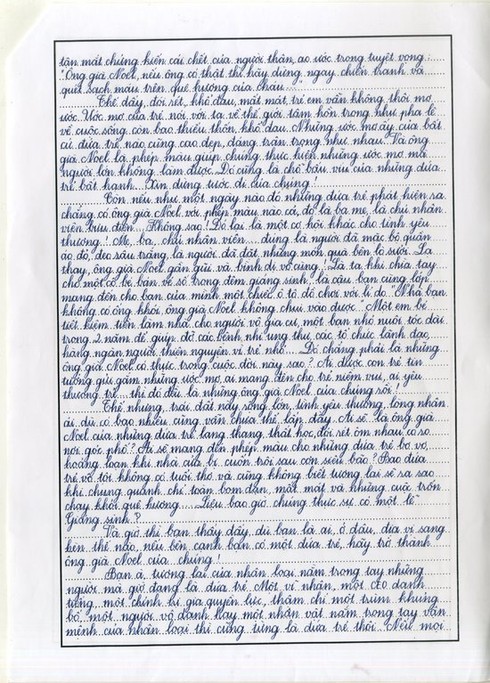 tận mắt chứng kiến cái chết của người thân, ao ước trong tuyệt vọng:
"Ông già Noel, nếu ông có thật thì hãy dừng ngay chiến tranh và
quét sạch máu trên quê hương của cháu..."
Thế đấy, đói rét, khổ đau, mất mát trẻ em vẫn không thôi mơ
ước. Ước mơ của trẻ nói với ta về thế giới tâm hồn trong như pha lê
về cuộc sống còn bao thiếu thốn, khổ đau. Những ước mơ ấy của bất
cứ đứa trẻ nào cũng cao đẹp, đáng trân trọng như nhau. Và ông
già Noel là phép màu giúp chúng thực hiện những ước mơ mà
người lớn không làm được. Đó cũng là chỗ bấu víu của những đứa
trẻ bất hạnh. Xin đừng tước đi của chúng!
Còn nếu như một ngày nào đó những đứa trẻ phát hiện ra
chẳng có ông già Noel với phép màu nào cả, đó là ba mẹ, là chú nhân
viên bưu điện... Không sao! Đó lại là một cơ hội khác cho tình yêu
thương! Mẹ, ba, chú nhân viên... đúng là người đã mặc bộ quần
áo đỏ, đeo râu trắng, là người đã đặt những món quà bên lò sưởi. Là
thay, ông già Noel gần gũi và bình dị vô cùng! Là ta khi chia tay
cho một cô bé bán vé số trong đêm giáng sinh, là cậu bạn cùng lớp
mang đến cho bạn của mình một chiếc ô tô đồ chơi với lí do "Nhà bạn
không có ống khói, ông già Noel không chui vào được". Một em bé
tiết kiệm tiền làm nhà cho người vô gia cư, một bạn nhỏ nuôi tóc dài
trong 2 năm để giúp đỡ các bệnh nhi ung thư, các tổ chức lãnh đạo,
hàng ngàn người thiện nguyện vì trẻ nhỏ... Đó chẳng phải là những
ông già Noel có thực trong cuộc đời này sao? Ai được con trẻ tin
tưởng gửi gắm những ước mơ, ai mang đến cho trẻ niềm vui, ai yêu
thương trẻ... thì đó đều là những ông già Noel của chúng rồi!
Thế nhưng, trái đất này rộng lớn, tình yêu thương, lòng nhân
ái dù có bao nhiêu cũng vẫn chưa thể lấp đầy. Ai sẽ là ông già
Noel của những đứa trẻ lang thang, thất học, đói rét ôm nhau co ro
nơi góc phố? Ai sẽ mang đến phép màu cho những đứa trẻ bơ vơ,
hoảng loạn khi nhà cửa bị cuốn trôi sau cơn siêu bão? Bao đứa
trẻ vô tội không có tuổi thơ và cũng không biết tương lai sẽ ra sao
khi chung quanh chỉ toàn bom đạn, mất mát và những cuộc trốn
chạy khỏi quê hương... Liệu bao giờ chúng thực sự có một lễ
Giáng sinh?
Và giờ thì bạn thấy đấy, dù bạn là ai, ở đâu, dù vì sang
hèn thế nào, nếu bên cạnh bạn có một đứa trẻ, hãy trở thành
ông già Noel của chúng!
Bạn ạ, tương lai của nhân loại nằm trong tay những
người mà giờ đang là đứa trẻ. Một vĩ nhân, một CEO danh
tiếng, một chính trị gia quyền lực, thậm chí một trùm khủng
bố, một người vô danh hay một nhân vật nắm trong tay vận
mệnh của nhân loại thì cũng từng là đứa trẻ thôi. Nếu mọi